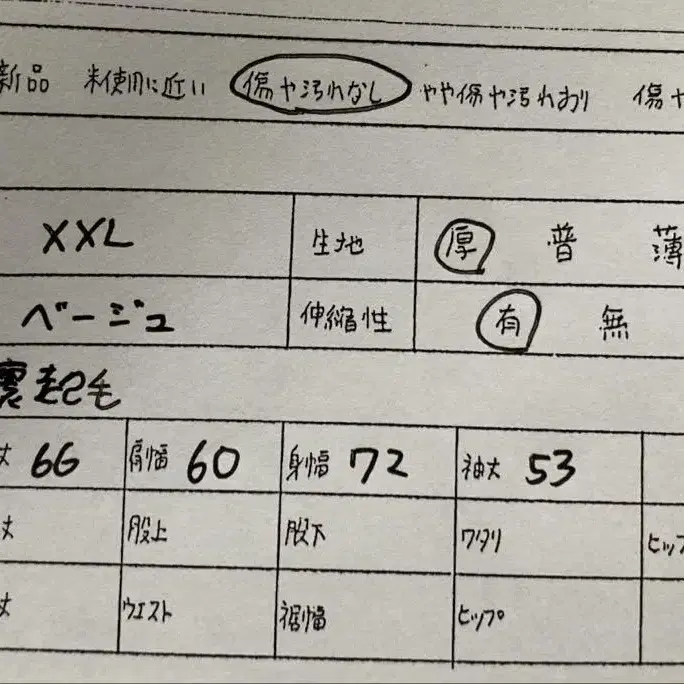 新品 未使用に近い 傷や汚れなし やや傷や汚れあり 傷や
XXL 生地 厚 普 薄
ベージュ 伸縮性 有 無
裏起毛
丈 66 肩幅 60 身幅 72 袖丈 53
丈 股上 股下 ワタリ ヒップ
丈 ウエスト 裾幅 ヒップ